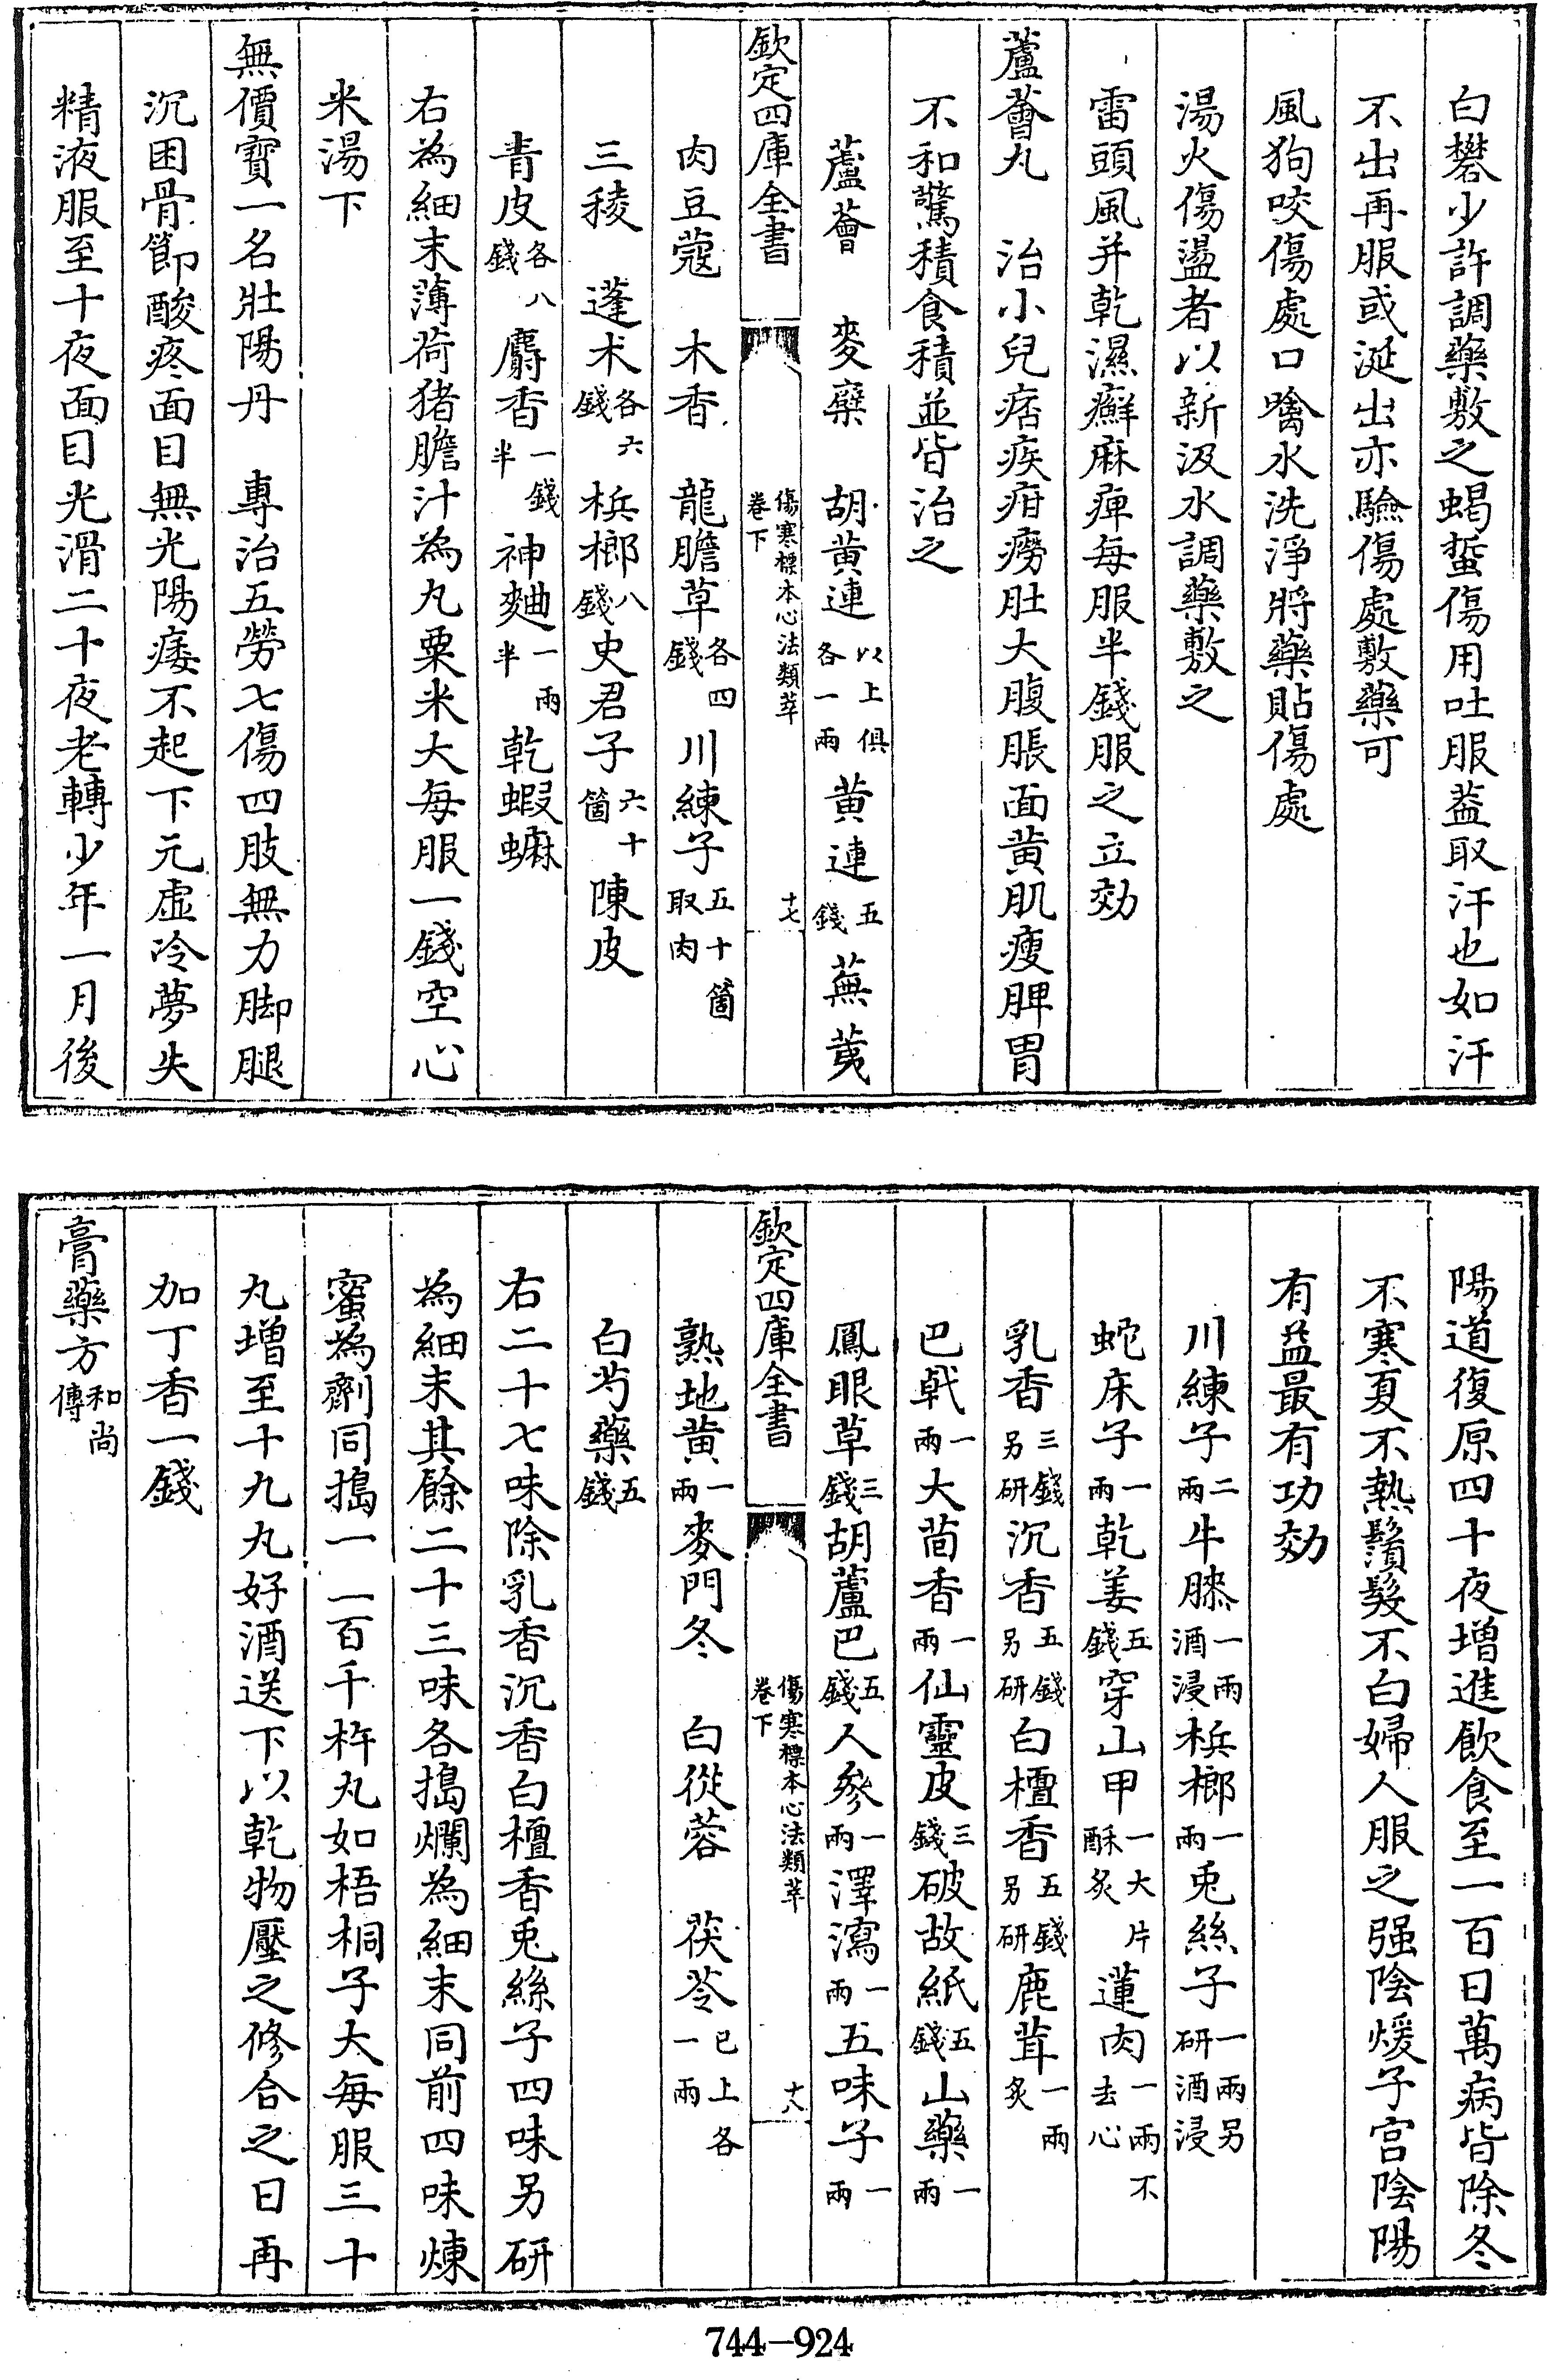 白礬少許調藥敷之蝎蜇傷用吐服葢取汗也如汗
不出再服或涎出亦驗傷處敷藥可
風狗咬傷處口噙水洗淨將藥貼傷處
湯火傷盪者以新汲水調藥敷之
雷頭風并乾濕癬麻痺每服半錢服之立効
蘆薈丸　治小兒痞疾疳癆肚大腹脹面黄肌瘦脾胃
不和驚積食積並皆治之
蘆薈　麥糵　胡黄連以上俱各一兩　黄連五錢　蕪荑
欽定四庫全書　傷寒標本心法類萃卷下　十七
肉豆蔻　木香　龍膽草各四錢　川練子五十箇取肉
三稜　蓬术各六錢　梹榔八錢　史君子六十箇　陳皮
青皮各八錢　麝香一錢半　神麯一兩半　乾蝦蟆
右為細末薄荷猪膽汁為丸粟米大每服一錢空心
米湯下
無價寳一名壯陽丹　專治五勞七傷四肢無力脚腿
沉困骨節酸疼面目無光陽痿不起下元虛冷夢失
精液服至十夜面目光滑二十夜老轉少年一月後
陽道復原四十夜增進飲食至一百日萬病皆除冬
不寒夏不熱鬚髮不白婦人服之强陰煖子宫陰陽
有益最有功効
川練子二兩　牛膝一兩酒浸　梹榔一兩　兎絲子一兩另研酒浸
蛇床子一兩　乾姜五錢　穿山甲一大片酥炙　蓮肉一兩不去心
乳香三錢另研　沉香五錢另研　白檀香五錢另研　鹿茸一兩炙
巴戟一兩　大茴香一兩　仙靈皮三錢　破故紙五錢　山藥一兩
鳳眼草三錢　胡蘆巴五錢　人參一兩　澤瀉一兩　五味子一兩
欽定四庫全書　傷寒標本心法類萃卷下　十八
熟地黄一兩　麥門冬　白從蓉　茯苓已上各一兩
白芍藥五錢
右二十七味除乳香沉香白檀香兎絲子四味另研
為細末其餘二十三味各搗爛為細末同前四味煉
蜜為劑同搗一二百千杵丸如梧桐子大每服三十
丸增至十九丸好酒送下以乾物壓之修合之日再
加丁香一錢
膏藥方和尚傳
744-924